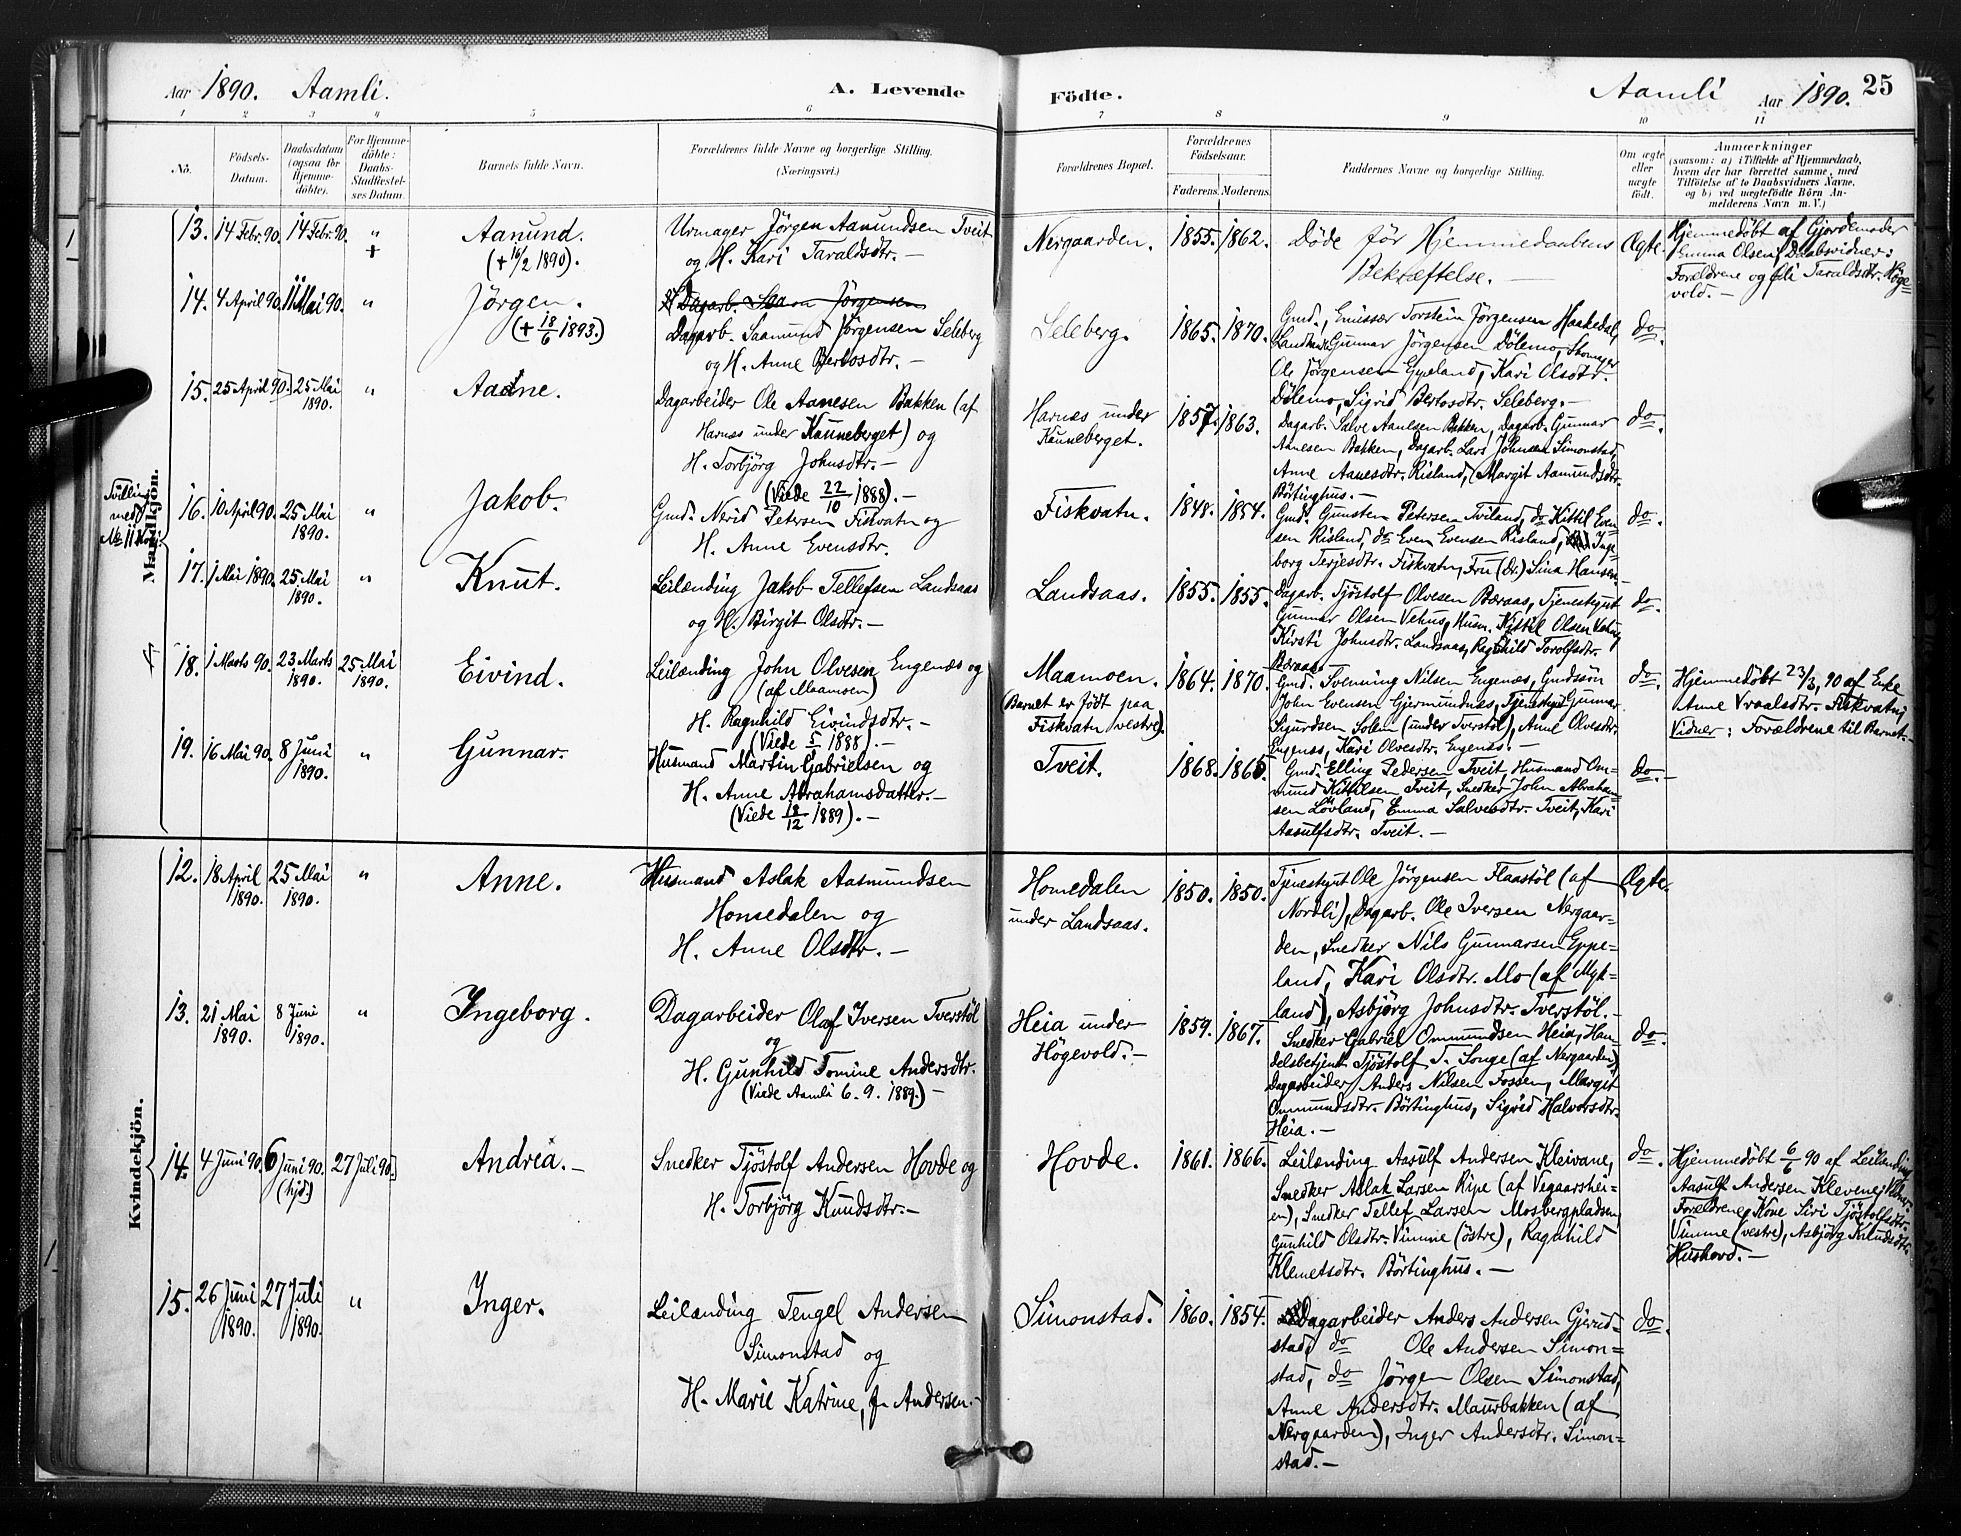 Aar 1890. Aamli. A. Levende Födte. Aamli Aar 1890. 25
1 2 3 4 5 6 7 8 9 10 11
No. Födsels-Datum. Daabsdatum (ogsaa for Hjemmedöbte). For Hjemmedöbte: Daabs-Stadfæstelses Datum. Barnets fulde Navn. Forældrenes fulde Navne og borgerlige Stilling. (Næringsvei.) Forældrenes Bopæl. Forældrenes Födselsaar. Faderens. Moderens. Faddernes Navne og borgerlige Stilling. Om ægte eller uægte födt. Anmærkninger (saasom: a) i Tilfælde af Hjemmedaab, hvem der har forrettet samme, med Tilföielse af to Daabsvidners Navne, og b) ved uægtefödte Börn Anmelderens Navn m. V.)
Mandkjön.
13. 14 Febr. 90. 14 Febr. 90. " +
Aanund.
(+ 16/2 1890).
Urmager Jörgen Aanundsen Tveit
og H. Kari Taraldsdtr. —
Nergaarden. 1855. 1862.
Döde för Hjemmedaabens
Bekræftelse. —
Ægte.
Hjemmedöbt af Gjordemoder
Emma Olsen, Daabsvidner:
Forældrene og Eli Taraldsdtr. Höge-
vold. —
14. 4 April 90. 11 Mai 90. "
Jörgen.
(+ 18/6 1893.)
Dagarb. Saamund Jörgensen Seleberg
og H. Anne Bertosdtr. —
Seleberg. 1865. 1870.
Gmd., Emissær Torstein Jörgensen Haakedal,
Gunnar Jörgensen Dölemo, Skomager
Ole Jörgensen Gyeland, Kari Olsdtr.
Dölemo, Sigrid Bertosdtr. Seleberg. —
do.
15. 25 April 90. 25 Mai 1890. "
Aadne.
Dagarbeider Ole Aanesen Bakken (af
Harnæs under Kauneberget) og
H. Torbjörg Johnsdtr. —
(Viede 22/10 1888). —
Harnæs under
Kauneberget.
1857. 1863.
Dagarb. Salve Aanesen Bakken, Dagarb. Gunnar
Aanesen Bakken, Dagarb. Lars Johnsen Simonstad,
Anne Aanesdtr. Risland, Margit Aamundsdtr.
Börtinghus. —
do.
Tvilling
med
No 11 Kvk.
16. 10 April 90. 25 Mai 1890. "
Jakob.
Gmd. Nerid Petersen Fiskvatn og
H. Anne Evensdtr.
Fiskvatn. 1848. 1854.
Gmd. Gunsten Petersen Tviland, do Kittil Even-
sen Risland, do Even Evensen Risland, Inge-
borg Terjesdtr. Fiskvatn, Fru (Dr.) Sina Hansen. —
do.
17. 1 Mai 1890. 25 Mai 1890. "
Knut.
Leilænding Jakob Tellefsen Landsaas
og H. Birgit Olsdtr. —
Landsaas. 1855. 1855.
Dagarb. Tjöstolf Olvesen Bæraas, Tjenestegut
Gunnar Olsen Vehus, Husm. Kittil Olsen Vehus,
Kirsti Johnsdtr. Landsaas, Ragnhild Torolfsdtr.
Bæraas.
do.
18. 1 Marts 90. 23 Marts 1890. 25 Mai 1890.
Eivind.
Leilænding John Olvesen Engenæs og
(af Maamoen)
H. Ragnhild Eivindsdtr. —
(Viede 5/8 1888). —
Maamoen.
(Barnet er födt paa
Fiskvatn (vestre).
1864. 1870.
Gmd. Svenning Nilsen Engenæs, Gmdsön
John Evensen Gjermundnes, Tjenestegut Gunnar
Sigurdsen Solen (under Tverstöl), Anne Olvesdtr.
Engenæs, Kari Olvesdtr. Engenæs. —
do.
Hjemmedöbt 23/3, 90 af Enke
Anne Vraalsdtr. Fiskvatn;
Vidner: Forældrene til Barnet. —
19. 16 Mai 90. 8 Juni 1890. "
Gunnar.
Husmand Martin Gabrielsen og
H. Anne Abrahamsdatter. —
(Viede 18/12 1889). —
Tveit. 1868. 1865.
Gmd. Elling Pedersen Tveit, Husmand Om-
mund Kittilsen Tveit, Snedker John Abraham-
sen Lövland, Emma Salvesdtr. Tveit, Kari
Aasulfsdtr. Tveit. —
do.
Kvindekjön.
12. 18 April 1890. 25 Mai 1890. "
Anne.
Husmand Aslak Aasmundsen
Homedalen og
H. Anne Olsdtr. —
Homedalen
under Landsaas.
1850. 1850.
Tjenestegut Ole Jörgensen Flaastöl (af
Nordli), Dagarb. Ole Iversen Nergaar-
den, Snedker Nils Gunnarsen Eppe-
land, Kari Olsdtr. Mo (af Myk-
land), Asbjörg Johnsdtr. Tverstöl. —
Ægte.
13. 21 Mai 1890. 8 Juni 1890. "
Ingeborg.
Dagarbeider Olaf Iversen Tverstöl
og
H. Gunhild Tomine Andersdtr.
(Viede Aamli 6. 9. 1889.) —
Heia under
Högevold. —
1859. 1867.
Snedker Gabriel Ommundsen Heia, Han-
delsbetjent Tjöstolf T. Songe (af Nergaarden),
Dagarbeider Anders Nilsen Fossen, Margit
Ommundsdtr. Börtinghus, Sigrid Halvorsdtr.
Heia. —
do.
14. 4 Juni 90. 6 Juni 90. (hjd.) 27 Juli 90.
Andrea. —
Snedker Tjöstolf Andersen Hovde og
H. Torbjörg Knudsdtr. —
Hovde. 1861. 1866.
Leilænding Aasulf Andersen Kleivane,
Snedker Aslak Larsen Ripe (af Vegaarshei-
en), Snedker Tellef Larsen Mosbergpladsen,
Gunhild Olsdtr. Vimme (östre), Ragnhild
Klemetsdtr. Börtinghus. —
do.
Hjemmedöbt 6/6 90 af Leilænding
Aasulf Andersen Klevene; Vidner:
Forældrene, Kone Siri Tjöstolfsdtr.
Vimme (vestre), Asbjörg Knudsdtr.
Huskovd. —
15. 26 Juni 1890. 27 Juli 1890. "
Inger.
Leilænding Tengel Andersen
Simonstad og
H. Marie Katrine, f. Andersen. —
Simonstad. 1860. 1854.
Dagarbeider Anders Andersen Gjerud-
stad, do Ole Andersen Simon-
stad, do Jörgen Olsen Simonstad,
Anne Andersdtr. Maurbakken (af
Nergaarden), Inger Andersdtr. Simon-
stad. —
do.